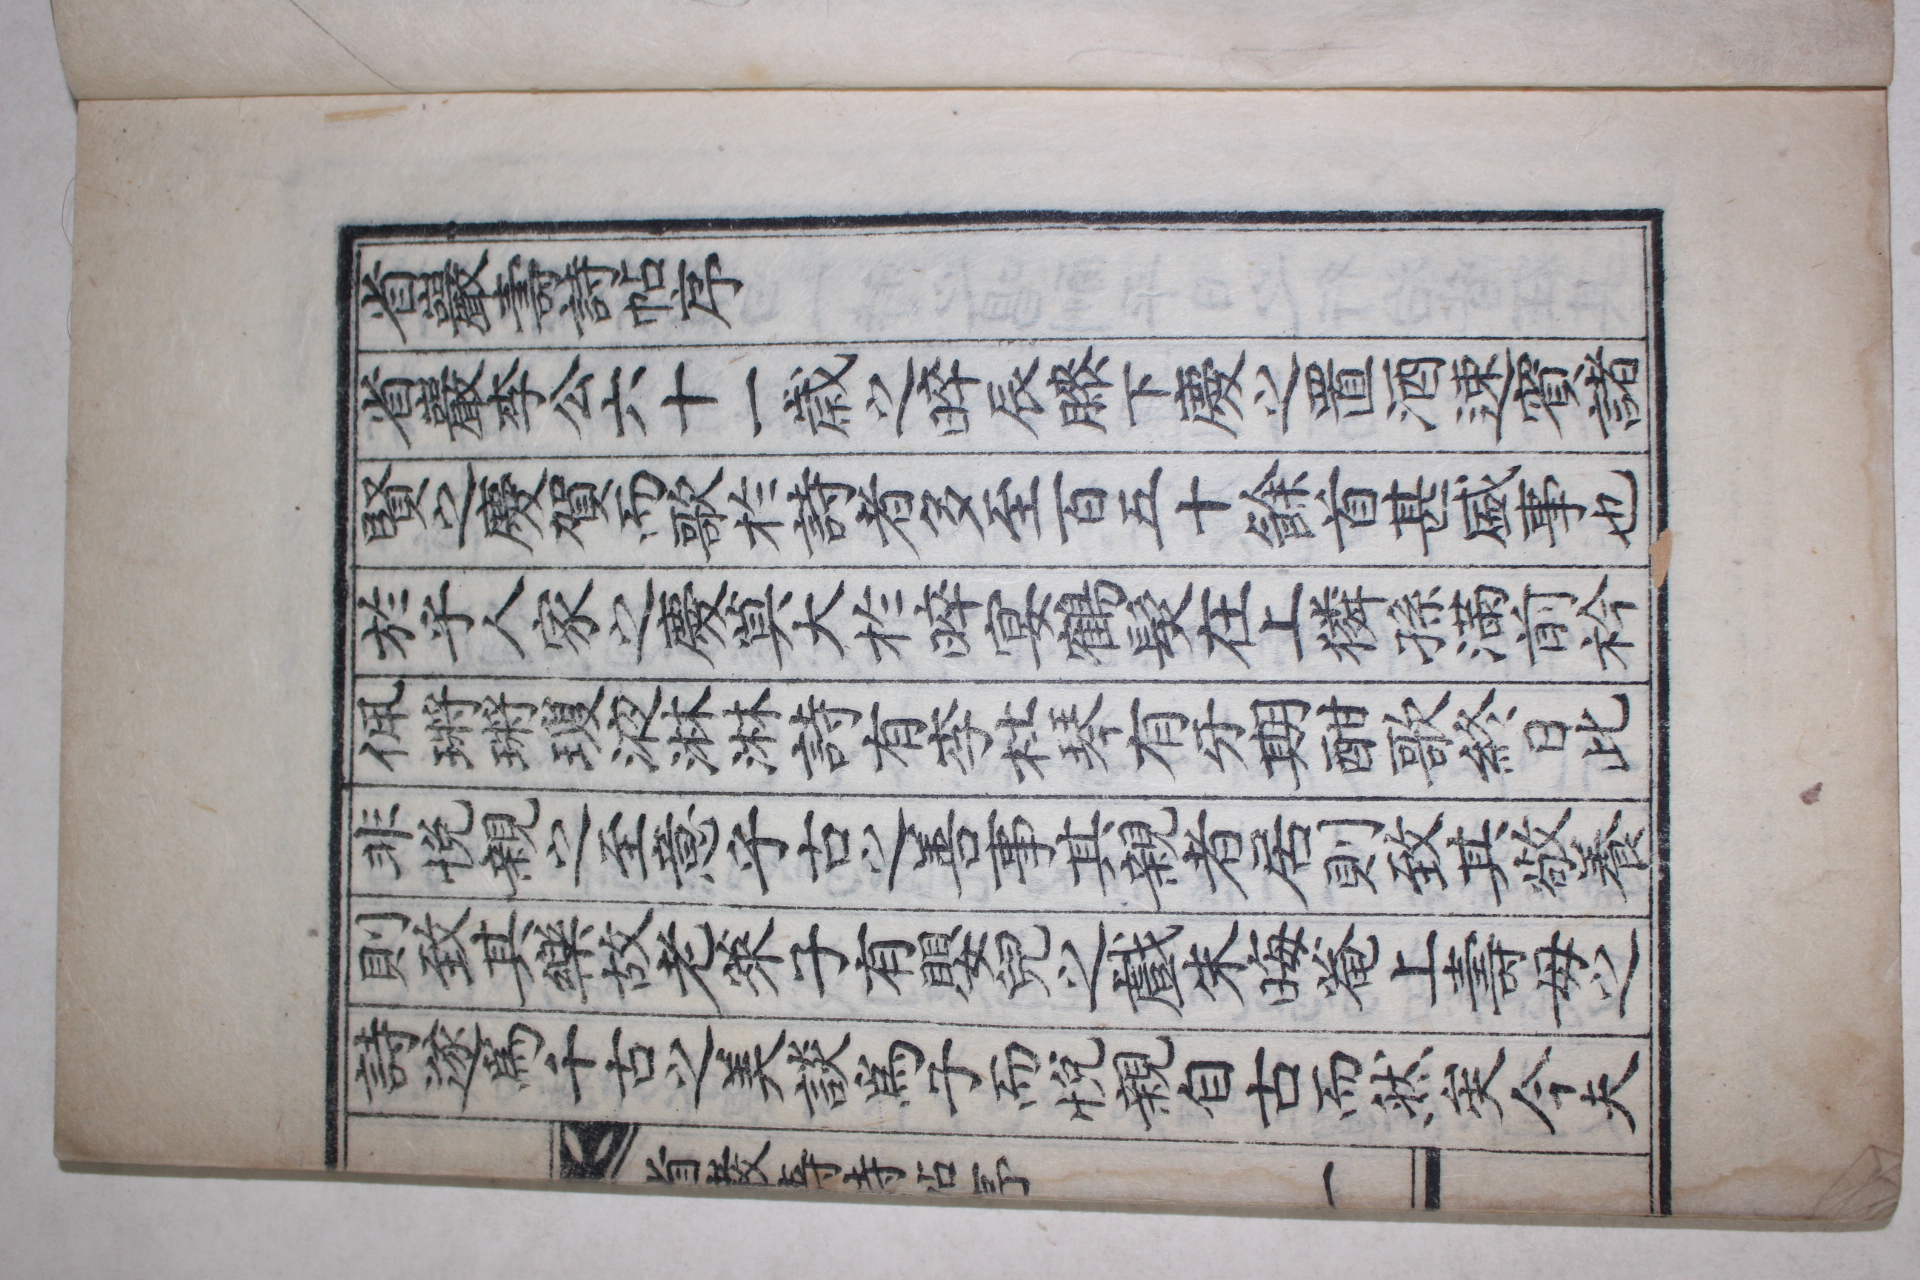 省巖壽詩帖序
省巖李公六十一歲之晬辰膝下慶之置酒速賓諸
賢之慶賀而歌於詩者多至百五十餘首甚盛事也
於乎人家之慶莫大於晬宴鶴髮在上彩孫滿前衿
佩鏘鏘瓊液淋淋詩有李杜琴有牙期酣歌終日此
非悅親之至意乎古之善事其親者居則致其敬養
則致其樂故老萊子有嬰兒之戲朱晦菴上壽母之
詩遂爲千古之美談爲子而悅親自古而然矣今夫
省巖壽詩帖序 一